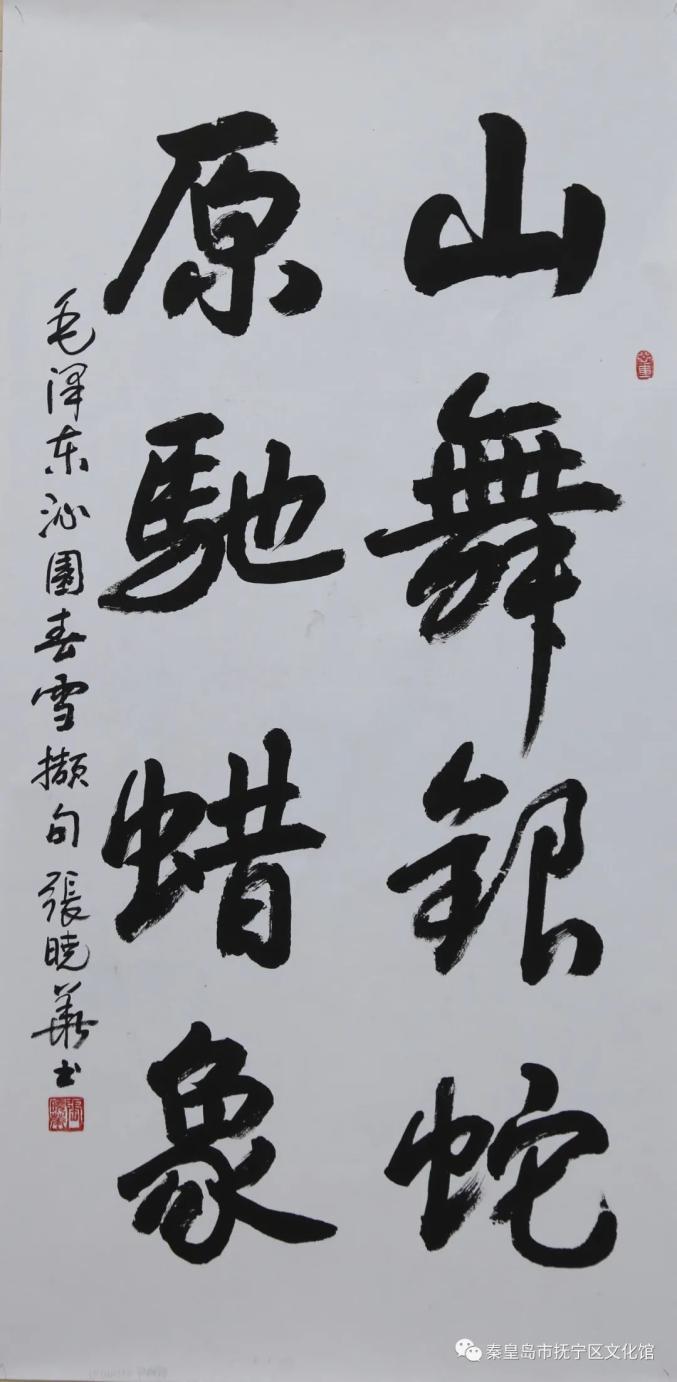 山舞銀蛇
原馳蜡象
毛泽东沁園春雪撷句 張晓華书
秦皇岛市抚宁区文化馆